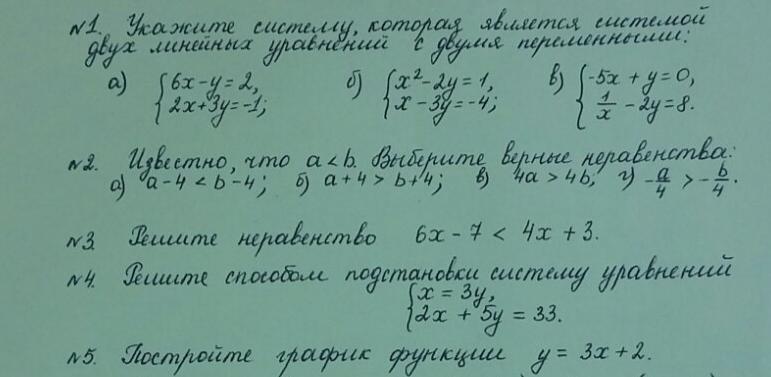 №1. Укажите систему, которая является системой
двух линейных уравнений с двумя переменными:
а) { 6x-y=2, 2x+3y=-1; б) { x²-2y=1, x-3y=-4; в) { -5x+y=0, 1/x -2y=8.
№2. Известно, что a<b. Выберите верные неравенства:
а) a-4<b-4; б) a+4>b+4; в) 4a>4b; г) -a/4 > -b/4.
№3. Решите неравенство 6x-7 < 4x+3.
№4. Решите способом подстановки систему уравнений
{ x = 3y,
2x + 5y = 33.
№5. Постройте график функции y = 3x+2.